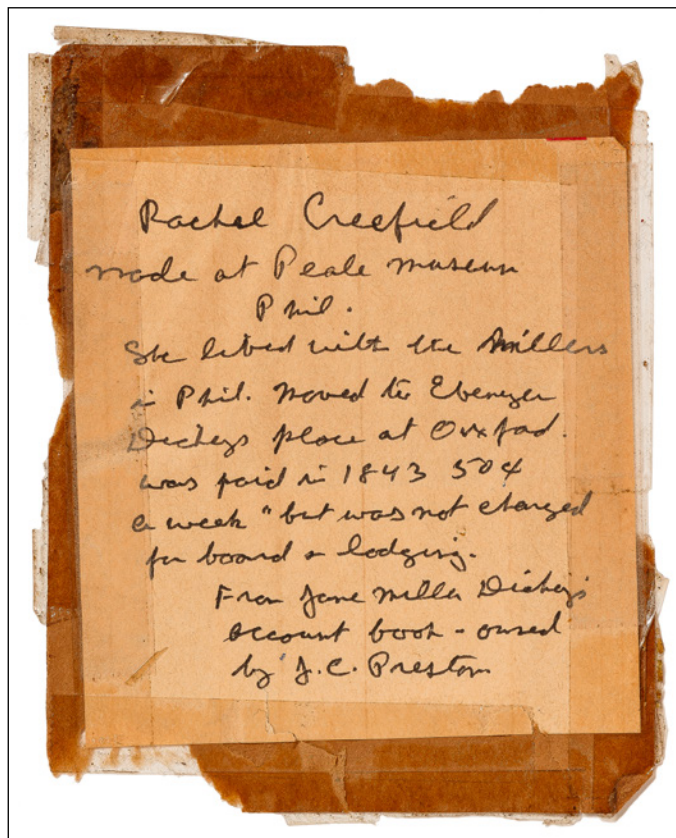 Rachel Creefield
made at Peale museum
Phil.
She lived with the Millers
in Phil. Moved to Ebenezer
Dickeys place at Oxford.
was paid in 1843 50¢
a week "but was not charged
for board & lodging.
From Jane Miller Dickey's
account book - owned
by J.C. Preston